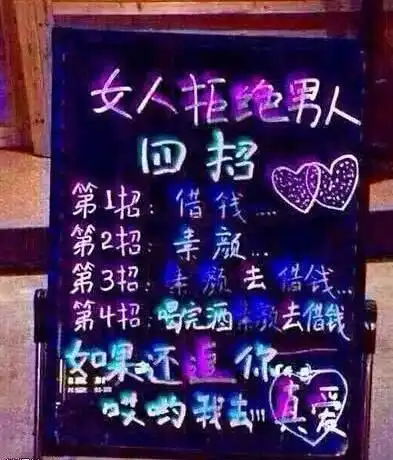 女人拒绝男人
四招
第1招：借钱...
第2招：素颜...
第3招：素颜去借钱...
第4招：喝完酒素颜去借钱
如果还追你...
哎哟我去...真爱